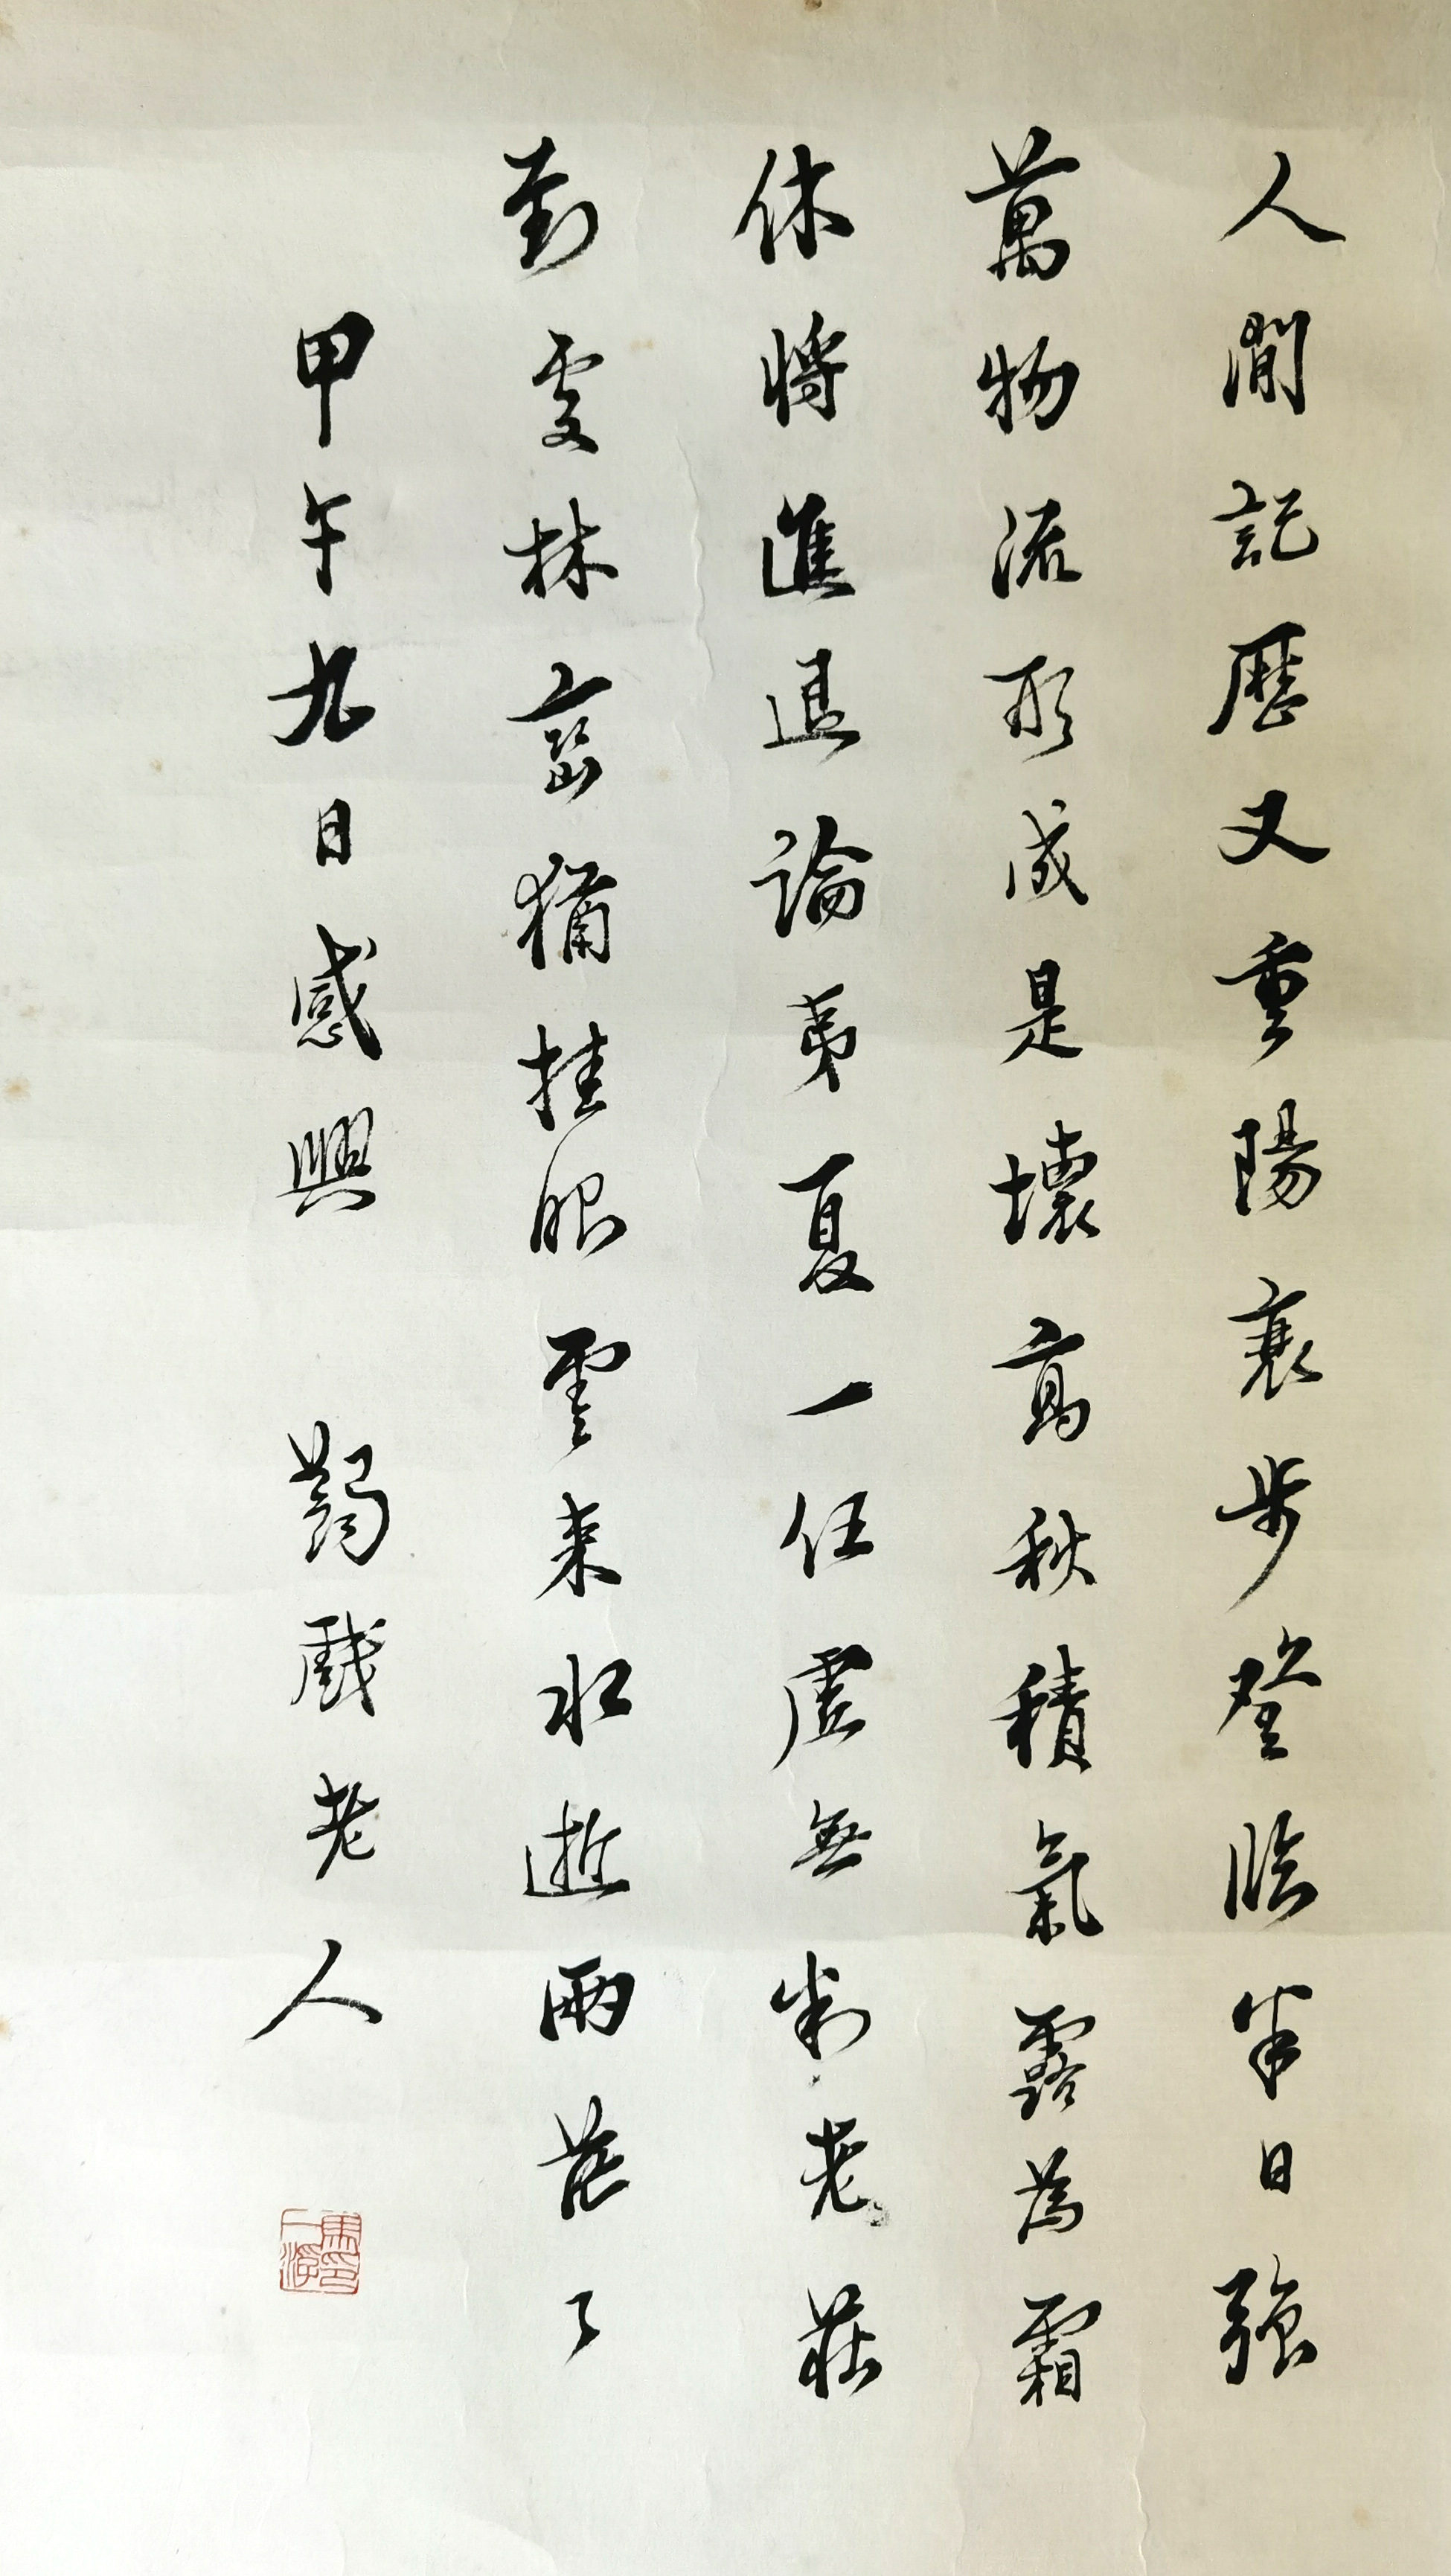 人間記歷又重陽衰步登臨半日強
萬物流形成是壞高秋積氣露為霜
休將進退論夷夏一任虛無判老莊
到處林巒猶挂眼雲來水逝兩茫々
甲午九日感興 蠲戲老人